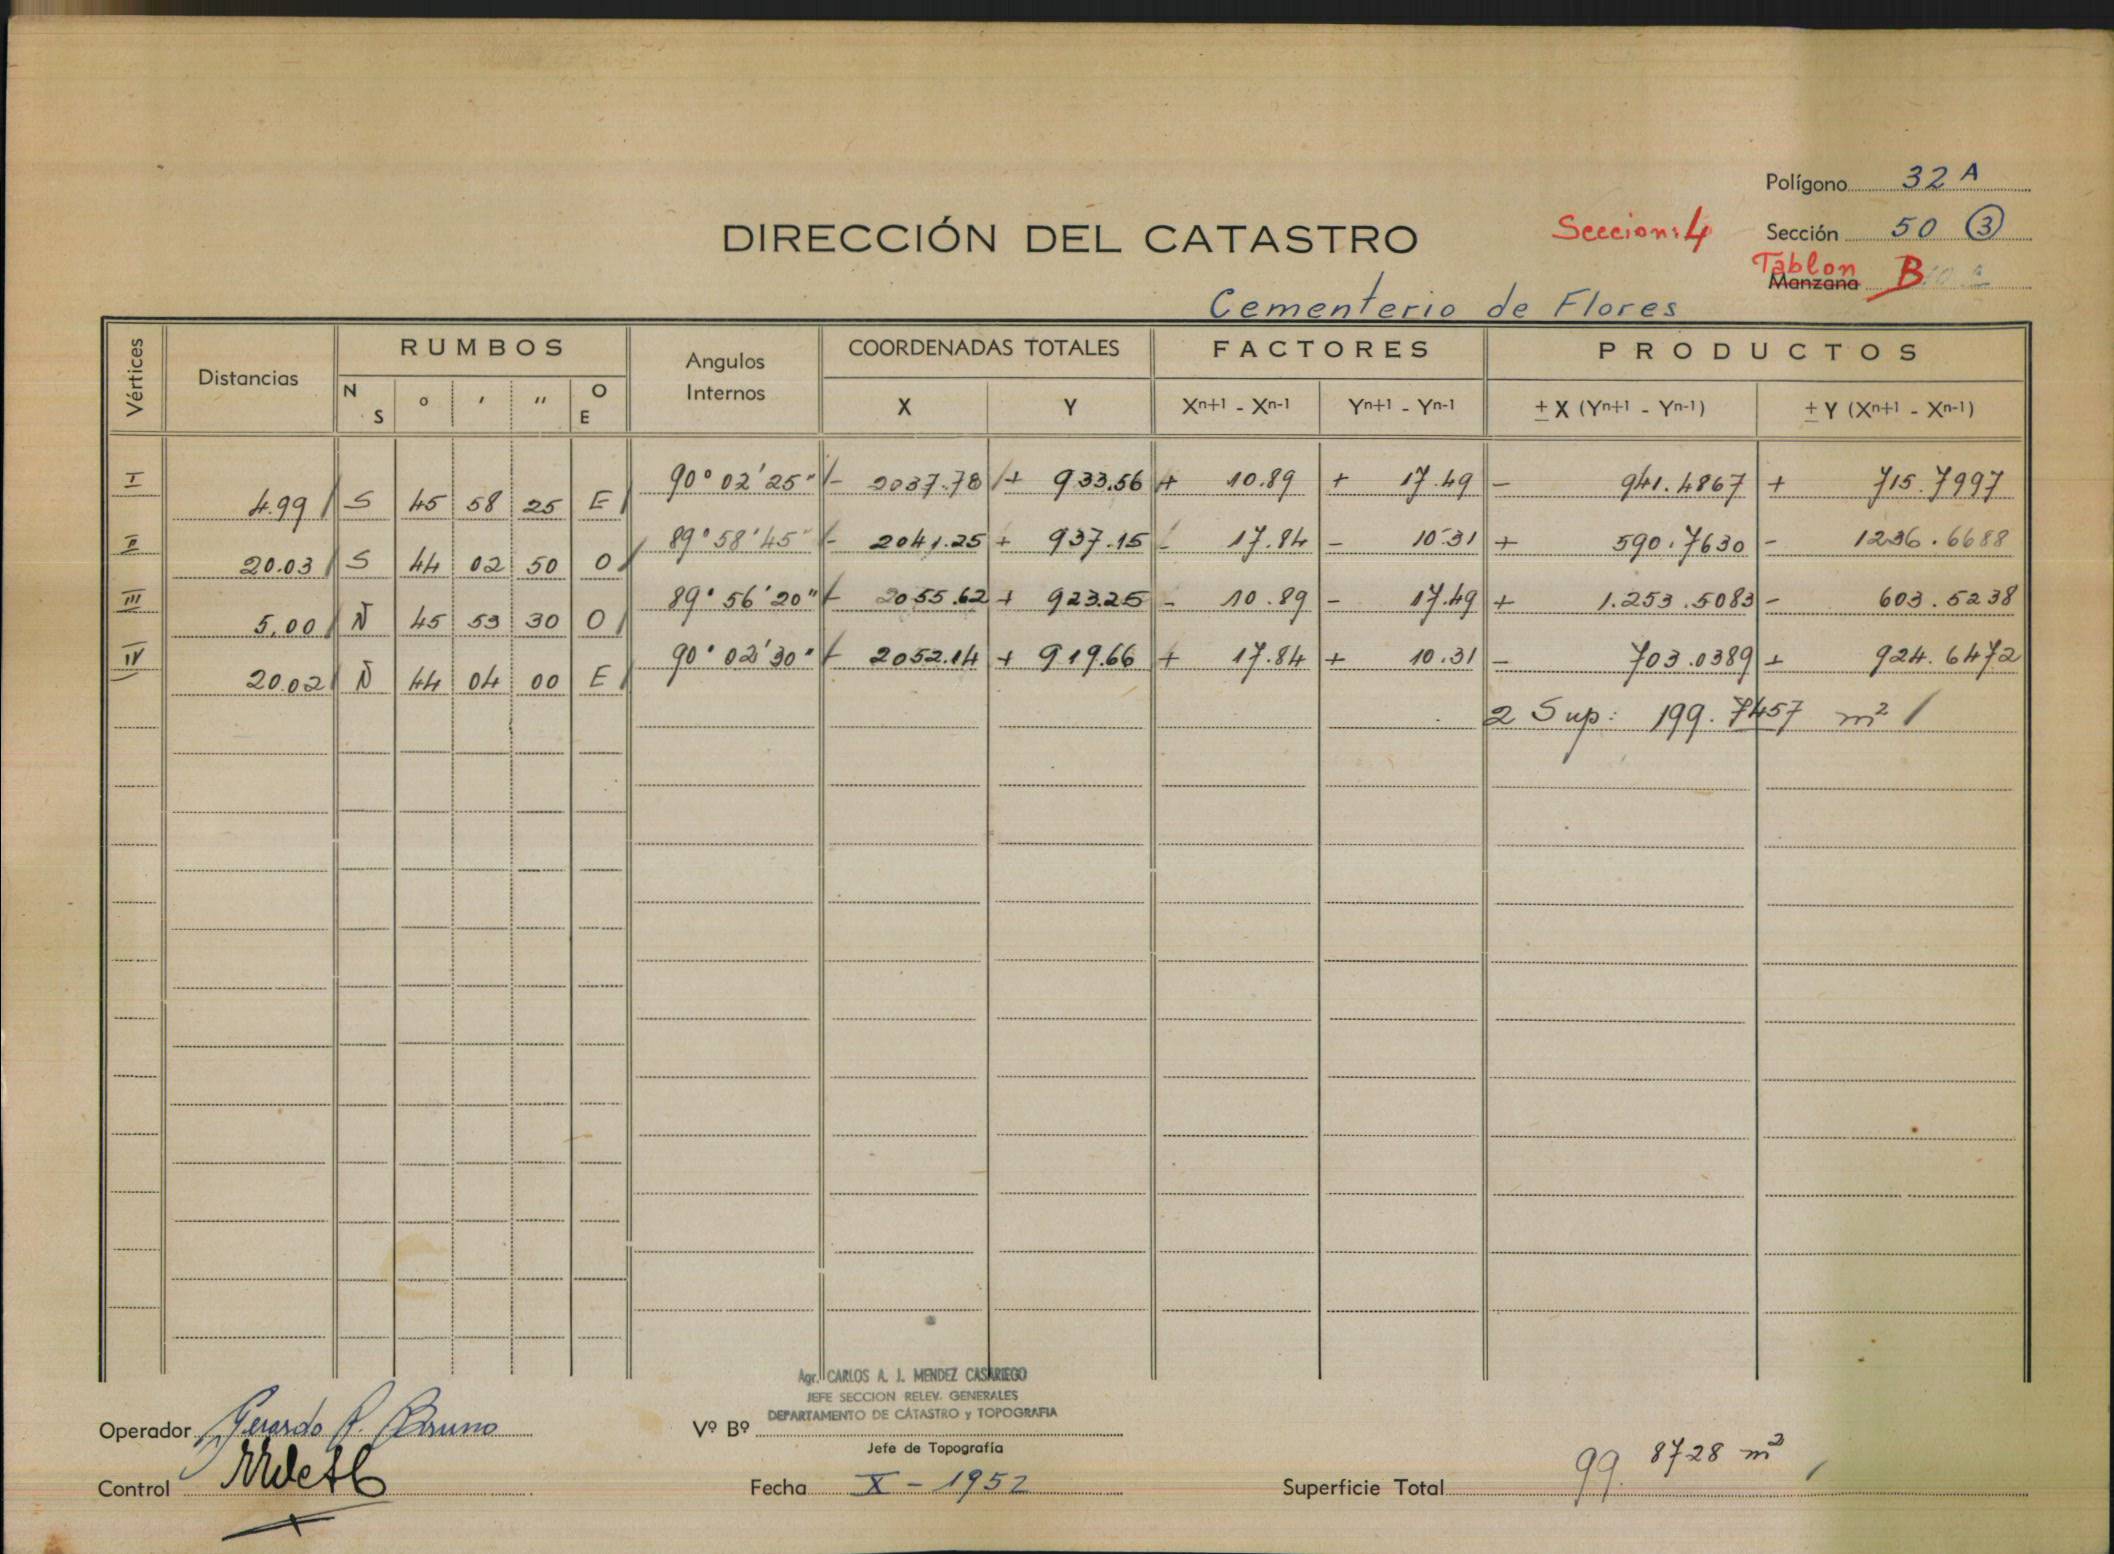 Polígono 32 A
DIRECCIÓN DEL CATASTRO
Seccion: 4
Sección 50 3
Tablon B
Manzana
Cementerio de Flores
Vértices Distancias RUMBOS Angulos Internos COORDENADAS TOTALES FACTORES PRODUCTOS
N S ° ' " O E X Y Xn+1 - Xn-1 Yn+1 - Yn-1 ± X (Yn+1 - Yn-1) ± Y (Xn+1 - Xn-1)
I 90° 02' 25" - 2037.78 + 933.56 + 10.89 + 17.49 - 941.4867 + 715.7997
4.99 S 45 58 25 E
II 89° 58' 45" - 2041.25 + 937.15 - 17.84 - 10.31 + 590.7630 - 1236.6688
20.03 S 44 02 50 O
III 89° 56' 20" - 2055.62 + 923.25 - 10.89 - 17.49 + 1.253.5083 - 603.5238
5,00 N 45 53 30 O
IV 90° 02' 30" - 2052.14 + 919.66 + 17.84 + 10.31 - 703.0389 + 924.6472
20.02 N 44 04 00 E
2 Sup: 199.7457 m²
Agr. CARLOS A. J. MENDEZ CASARIEGO
JEFE SECCION RELEV. GENERALES
DEPARTAMENTO DE CATASTRO y TOPOGRAFIA
Operador Gerardo R. Bruno
Vº Bº
Jefe de Topografía
Control
Fecha X - 1952
Superficie Total 99.8728 m²